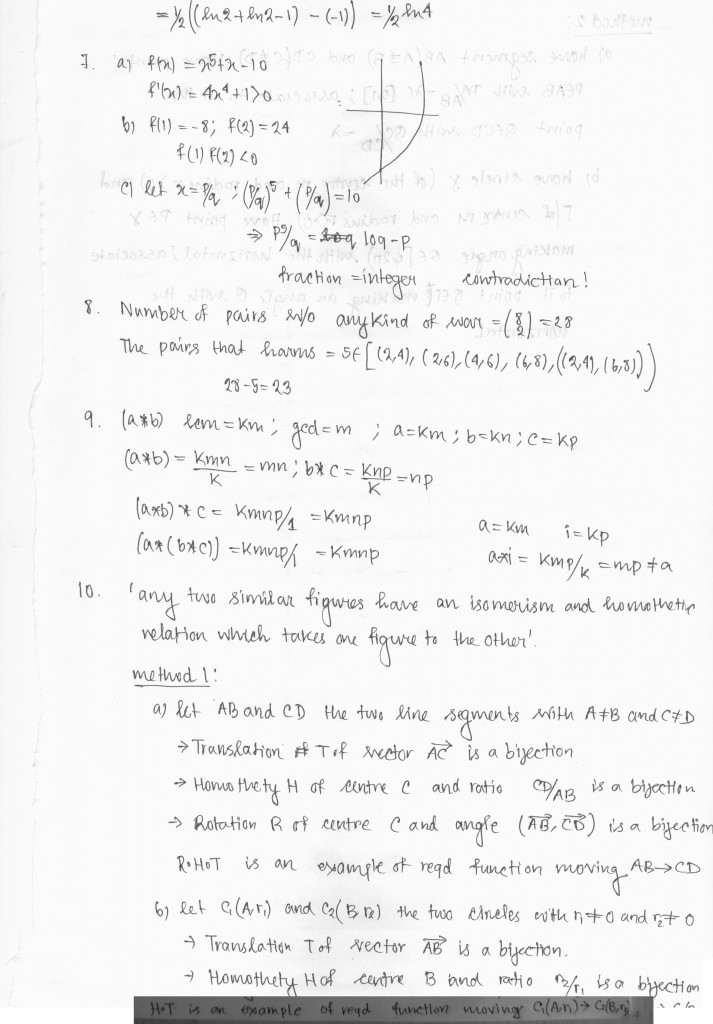 = 1/2 ((ln2+ln2-1) - (-1)) = 1/2 ln4
7. a) f(x) = x⁵+x-10
f'(x) = 4x⁴+1>0
b) f(1) = -8; f(2) = 24
f(1) f(2) <0
c) let x = p/q ; (p/q)⁵ + (p/q) = 10
⇒ p⁵/q = 10q - p
fraction = integer contradiction!
8. Number of pairs w/o any kind of war = (8 2) = 28
The pairs that harms = 5∈[(2,4), (2,6), (4,6), (6,8), ((2,4), (6,8))]
28-5=23
9. (a*b) lcm = km ; gcd = m ; a=km ; b=kn ; c=kp
(a*b) = kmn/k = mn ; b*c = knp/k = np
(a*b)*c = kmnp/1 = kmnp a=km i=kp
(a*(b*c)) = kmnp/1 = kmnp a*i = kmp/k = mp ≠ a
10. 'any two similar figures have an isomerism and homothetic
relation which takes one figure to the other'.
method 1:
a) let AB and CD the two line segments with A≠B and C≠D
→ Translation T of vector AC is a bijection
→ Homothety H of centre C and ratio CD/AB is a bijection
→ Rotation R of centre C and angle (AB, CD) is a bijection
R∘H∘T is an example of reqd function moving AB→CD
b) let C₁(A,r₁) and C₂(B,r₂) the two circles with r₁≠0 and r₂≠0
→ Translation T of vector AB is a bijection.
→ Homothety H of centre B and ratio r₂/r₁ is a bijection
H∘T is an example of reqd function moving C₁(A,r₁)→C₂(B,r₂)